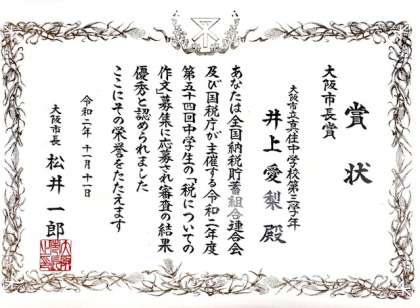 賞状
大阪市長賞
大阪市立真住中学校第三学年
井上愛梨殿
あなたは全国納税貯蓄組合連合会
及び国税庁が主催する令和二年度
第五十四回中学生の「税についての
作文」募集に応募され審査の結果
優秀と認められました
ここにその栄誉をたたえます
令和二年十一月十一日
大阪市長 松井一郎